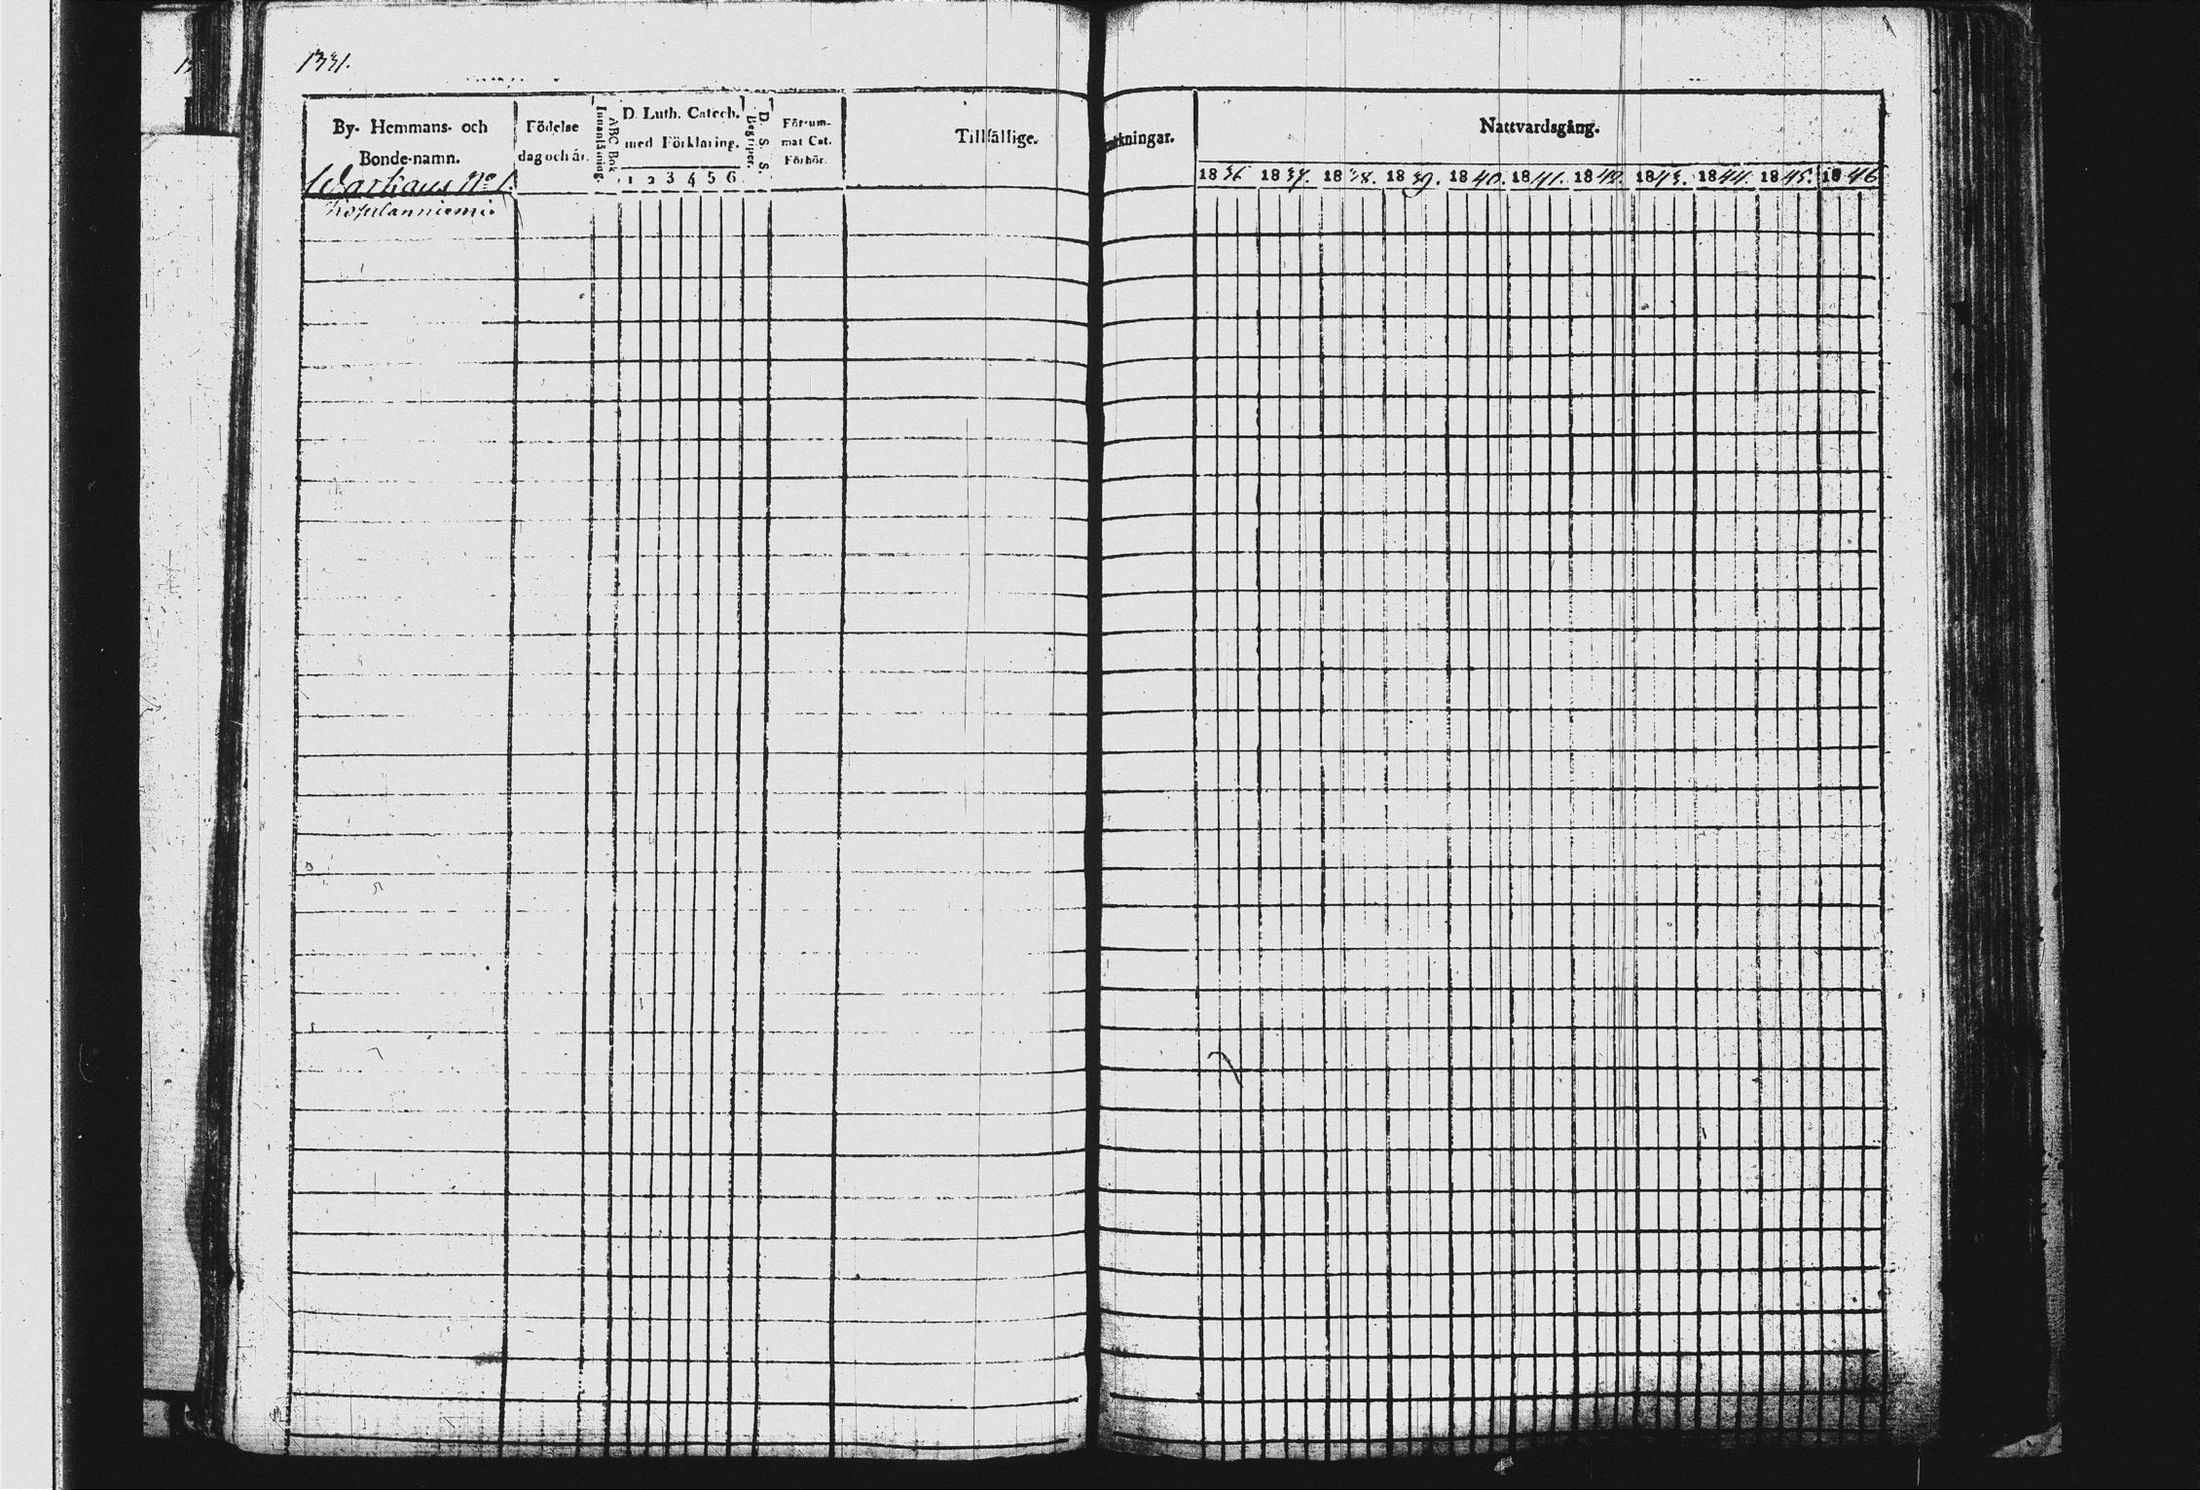 1331.
By- Hemmans- och
Bonde-namn.
Födelse
dag och år.
Innanläsning.
ABC Bok
D. Luth. Catech.
med Förklaring.
1 2 3 4 5 6
Begriper.
D. S. S.
Försum-
mat Cat.
Förhör.
Tillfällige.
kningar.
Nattvardsgång.
1836 1837. 1838. 1839. 1840. 1841. 1842. 1843. 1844. 1845. 1846
Warkaus No 1.